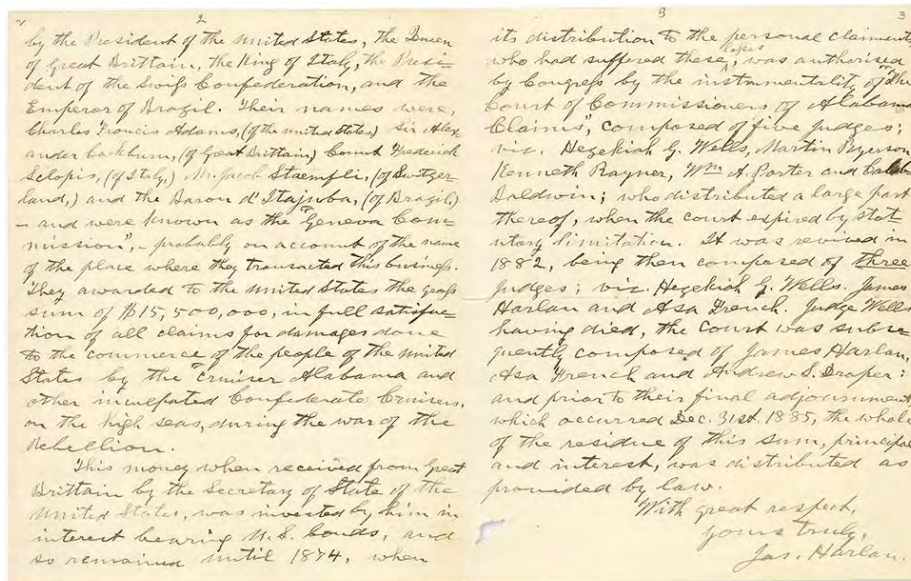 2
by the President of the United States, the Queen
of Great Brittain, the King of Italy, the Presi-
dent of the Swiss Confederation, and the
Emperor of Brazil. Their names were,
Charles Francis Adams, (of the United States) Sir Alex-
ander Cockburn, (of Great Brittain) Count Frederick
Sclopis, (of Italy,) Mr. Jacob Staempfli, (of Switzer-
land,) and the Baron d'Itajuba, (of Brazil,)
- and were known as the "Geneva Com-
mission", - probably on account of the name
of the place where they transacted this business.
They awarded to the United States the gross
sum of $15,500,000, in full satisfac-
tion of all claims for damages done
to the commerce of the people of the United
States by the Cruiser Alabama and
other inculpated Confederate Cruisers,
on the high seas, during the war of the
Rebellion.
This money when received from Great
Brittain by the Secretary of State of the
United States, was invested by him in
interest bearing U.S. bonds, and
so remained until 1874, when
3
its distribution to the personal claimants
who had suffered these losses, was authorised
by Congress by the instrumentality of "the
Court of Commissioners of Alabama
Claims", composed of five judges;
viz. Hezekiah G. Wells, Martin Ryerson
Kenneth Rayner, Wm A. Porter and Caleb
Baldwin; who distributed a large part
thereof, when the court expired by stat-
utary limitation. It was revived in
1882, being then composed of three
judges; viz. Hezekiah G. Wells. James
Harlan and Asa French. Judge Wells
having died, the Court was subse-
quently composed of James Harlan,
Asa French and Andrew S. Draper:
and prior to their final adjournment
which occurred Dec. 31st. 1885, the whole
of the residue of this sum, principal
and interest, was distributed as
provided by law.
With great respect,
Yours truly,
Jas. Harlan.